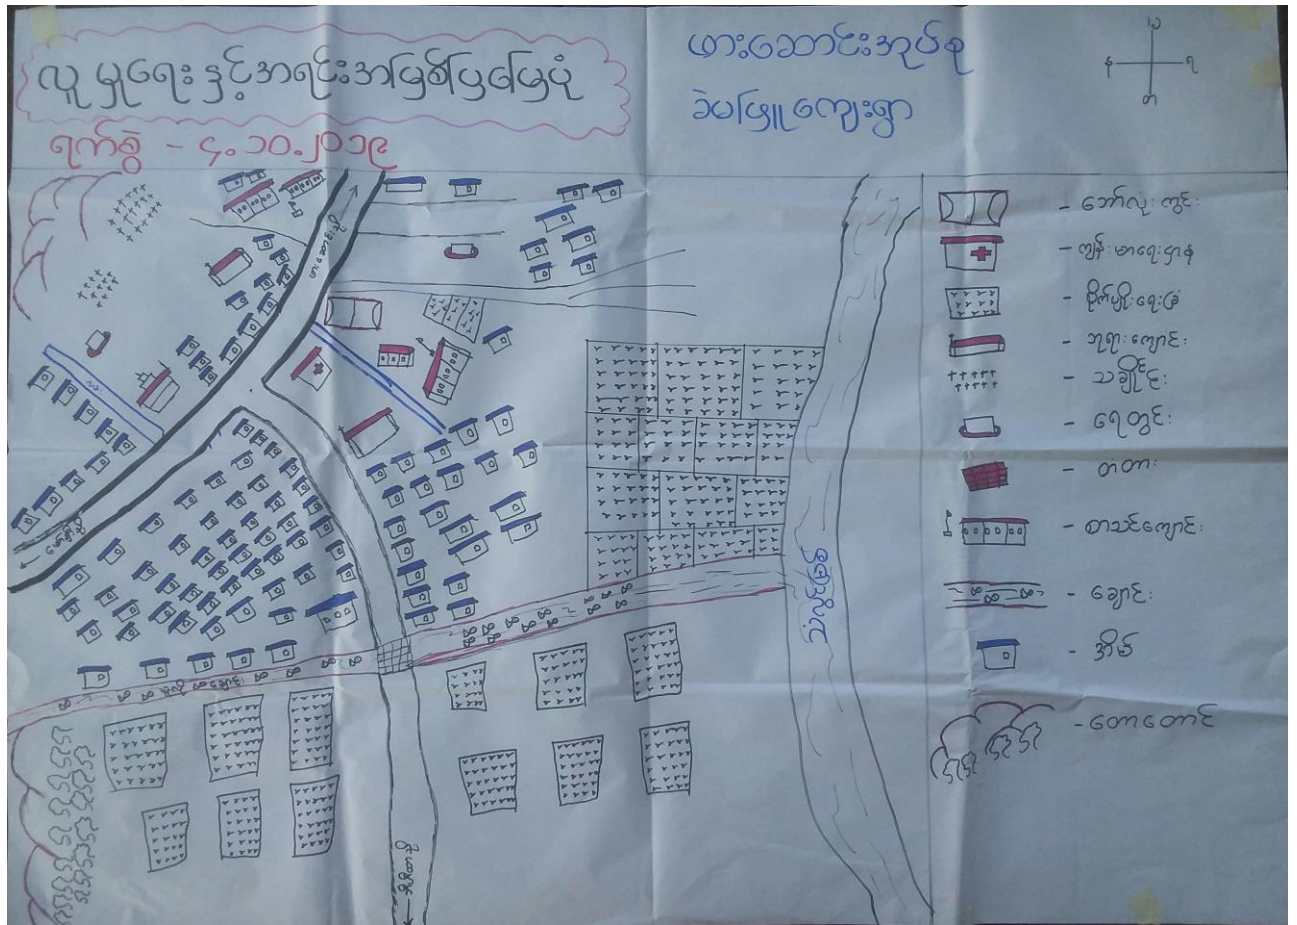 လူမှုရေးနှင့်အရင်းအမြစ်ပြမြေပုံ
ရက်စွဲ - ၄.၁၀.၂၀၁၉
ဖားဆောင်းအုပ်စု
ခဲမဖြူကျေးရွာ
မ
န
ရ
တ
- ဘော်လုံးကွင်း
- ကျန်းမာရေးဌာန
- စိုက်ပျိုးရေးခြံ
- ဘုရားကျောင်း
- သချိုင်း
- ရေတွင်း
- တံတား
- စာသင်ကျောင်း
- ချောင်း
- အိမ်
- တောတောင်